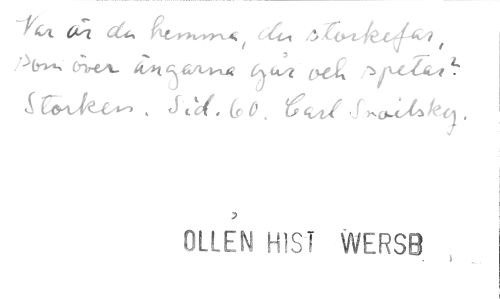 Var är du hemma, du storkefar,
som över ängarna går och spetar?
Storken. Sid. 60. Carl Snoilsky.
OLLÉN HIST WERSB